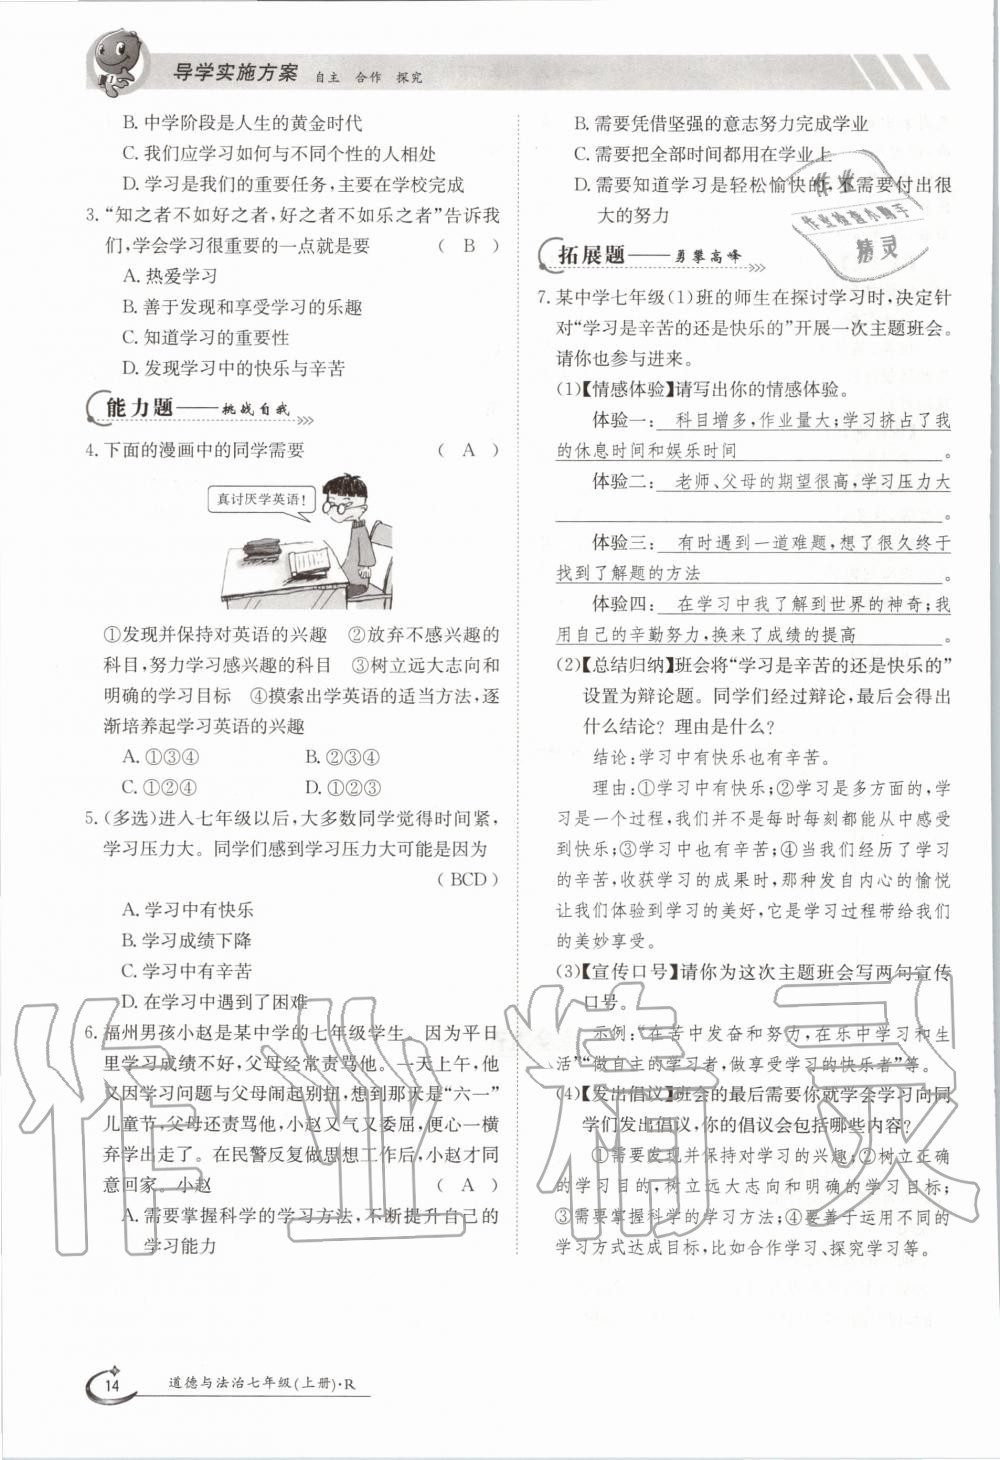 导学实施方案 自主 合作 探究
B. 中学阶段是人生的黄金时代
C. 我们应学习如何与不同个性的人相处
D. 学习是我们的重要任务,主要在学校完成
3. “知之者不如好之者,好之者不如乐之者”告诉我
们,学会学习很重要的一点就是要 ( B )
A. 热爱学习
B. 善于发现和享受学习的乐趣
C. 知道学习的重要性
D. 发现学习中的快乐与辛苦
能力题——挑战自我
4. 下面的漫画中的同学需要 ( A )
真讨厌学英语!
①发现并保持对英语的兴趣 ②放弃不感兴趣的
科目,努力学习感兴趣的科目 ③树立远大志向和
明确的学习目标 ④摸索出学英语的适当方法,逐
渐培养起学习英语的兴趣
A. ①③④ B. ②③④
C. ①②④ D. ①②③
5. (多选)进入七年级以后,大多数同学觉得时间紧,
学习压力大。同学们感到学习压力大可能是因为
( BCD )
A. 学习中有快乐
B. 学习成绩下降
C. 学习中有辛苦
D. 在学习中遇到了困难
6. 福州男孩小赵是某中学的七年级学生。因为平日
里学习成绩不好,父母经常责骂他。一天上午,他
又因学习问题与父母闹起别扭,想到那天是“六一”
儿童节,父母还责骂他,小赵又气又委屈,便心一横
弃学出走了。在民警反复做思想工作后,小赵才同
意回家。小赵 ( A )
A. 需要掌握科学的学习方法,不断提升自己的
学习能力
B. 需要凭借坚强的意志努力完成学业
C. 需要把全部时间都用在学业上
D. 需要知道学习是轻松愉快的,不需要付出很
大的努力
拓展题——勇攀高峰
7. 某中学七年级(1)班的师生在探讨学习时,决定针
对“学习是辛苦的还是快乐的”开展一次主题班会。
请你也参与进来。
(1)【情感体验】请写出你的情感体验。
体验一: 科目增多,作业量大;学习挤占了我
的休息时间和娱乐时间 。
体验二: 老师、父母的期望很高,学习压力大
。
体验三: 有时遇到一道难题,想了很久终于
找到了解题的方法 。
体验四: 在学习中我了解到世界的神奇;我
用自己的辛勤努力,换来了成绩的提高 。
(2)【总结归纳】班会将“学习是辛苦的还是快乐的”
设置为辩论题。同学们经过辩论,最后会得出
什么结论?理由是什么?
结论:学习中有快乐也有辛苦。
理由:①学习中有快乐;②学习是多方面的,学
习是一个过程,我们并不是每时每刻都能从中感受
到快乐;③学习中也有辛苦;④当我们经历了学习
的辛苦,收获学习的成果时,那种发自内心的愉悦
让我们体验到学习的美好,它是学习过程带给我们
的美妙享受。
(3)【宣传口号】请你为这次主题班会写两句宣传
口号。
示例:“在苦中发奋和努力,在乐中学习和生
活”“做自主的学习者,做享受学习的快乐者”等。
(4)【发出倡议】班会的最后需要你就学会学习向同
学们发出倡议,你的倡议会包括哪些内容?
①需要发现并保持对学习的兴趣;②树立正确
的学习目的,树立远大志向和明确的学习目标;
③需要掌握科学的学习方法;④要善于运用不同的
学习方式达成目标,比如合作学习、探究学习等。
作业
作业检查小助手
精灵
作业精灵
14 道德与法治七年级(上册)·R